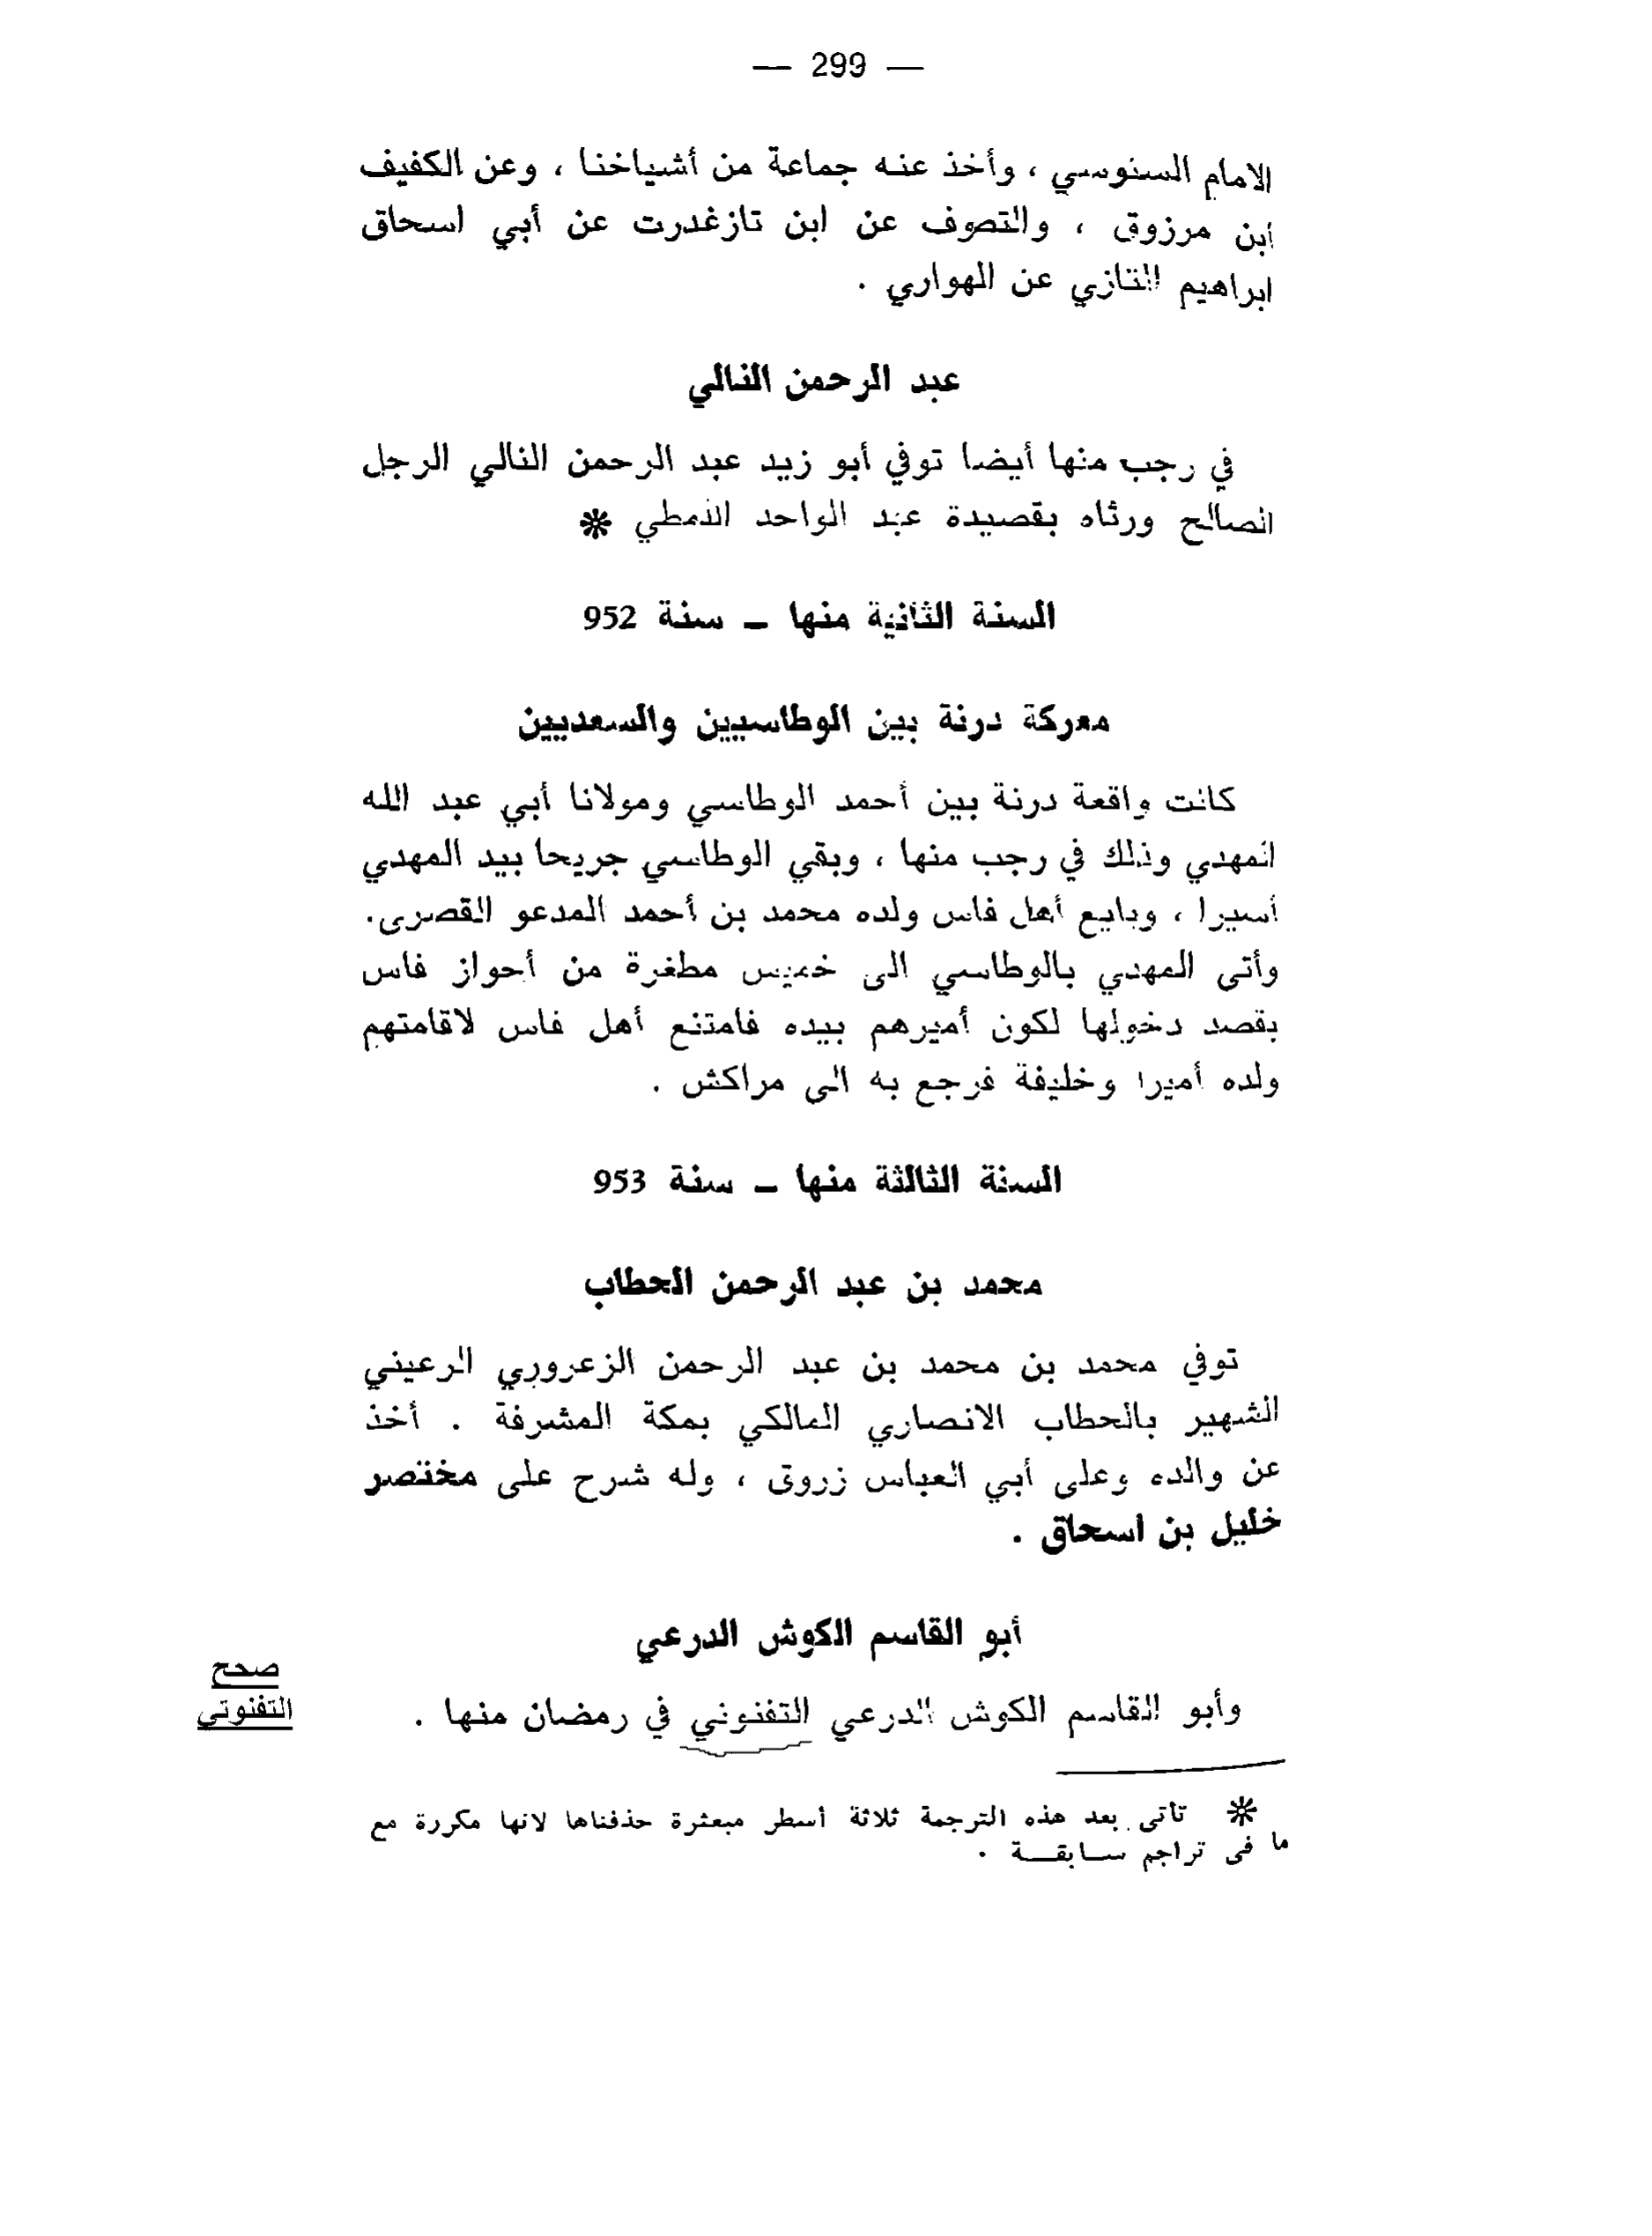 — 299 —
الامام السنوسي ، وأخذ عنه جماعة من أشياخنا ، وعن الكفيف
ابن مرزوق ، والتصوف عن ابن تازغدرت عن أبي اسحاق
ابراهيم التازي عن الهواري .
عبد الرحمن النالي
في رجب منها أيضا توفي أبو زيد عبد الرحمن النالي الرجل
الصالح ورثاه بقصيدة عبد الواحد النمطي *
السنة الثانية منها – سنة 952
معركة درنة بين الوطاسيين والسعديين
كانت واقعة درنة بين أحمد الوطاسي ومولانا أبي عبد الله
المهدي وذلك في رجب منها ، وبقي الوطاسي جريحا بيد المهدي
أسيرا ، وبايع أهل فاس ولده محمد بن أحمد المدعو القصرى.
وأتى المهدي بالوطاسي الى خميس مطغرة من أحواز فاس
بقصد دخولها لكون أميرهم بيده فامتنع أهل فاس لاقامتهم
ولده أميرا وخليفة فرجع به الى مراكش .
السنة الثالثة منها – سنة 953
محمد بن عبد الرحمن الحطاب
توفي محمد بن محمد بن عبد الرحمن الزعروري الرعيني
الشهير بالحطاب الانصاري المالكي بمكة المشرفة . أخذ
عن والده وعلى أبي العباس زروق ، وله شرح على مختصر
خليل بن اسحاق .
أبو القاسم الكوش الدرعي
صحح
التفنوتي
وأبو القاسم الكوش الدرعي التفنوني في رمضان منها .
* تأتى بعد هذه الترجمة ثلاثة أسطر مبعثرة حذفناها لانها مكررة مع
ما فى تراجم سابقة .